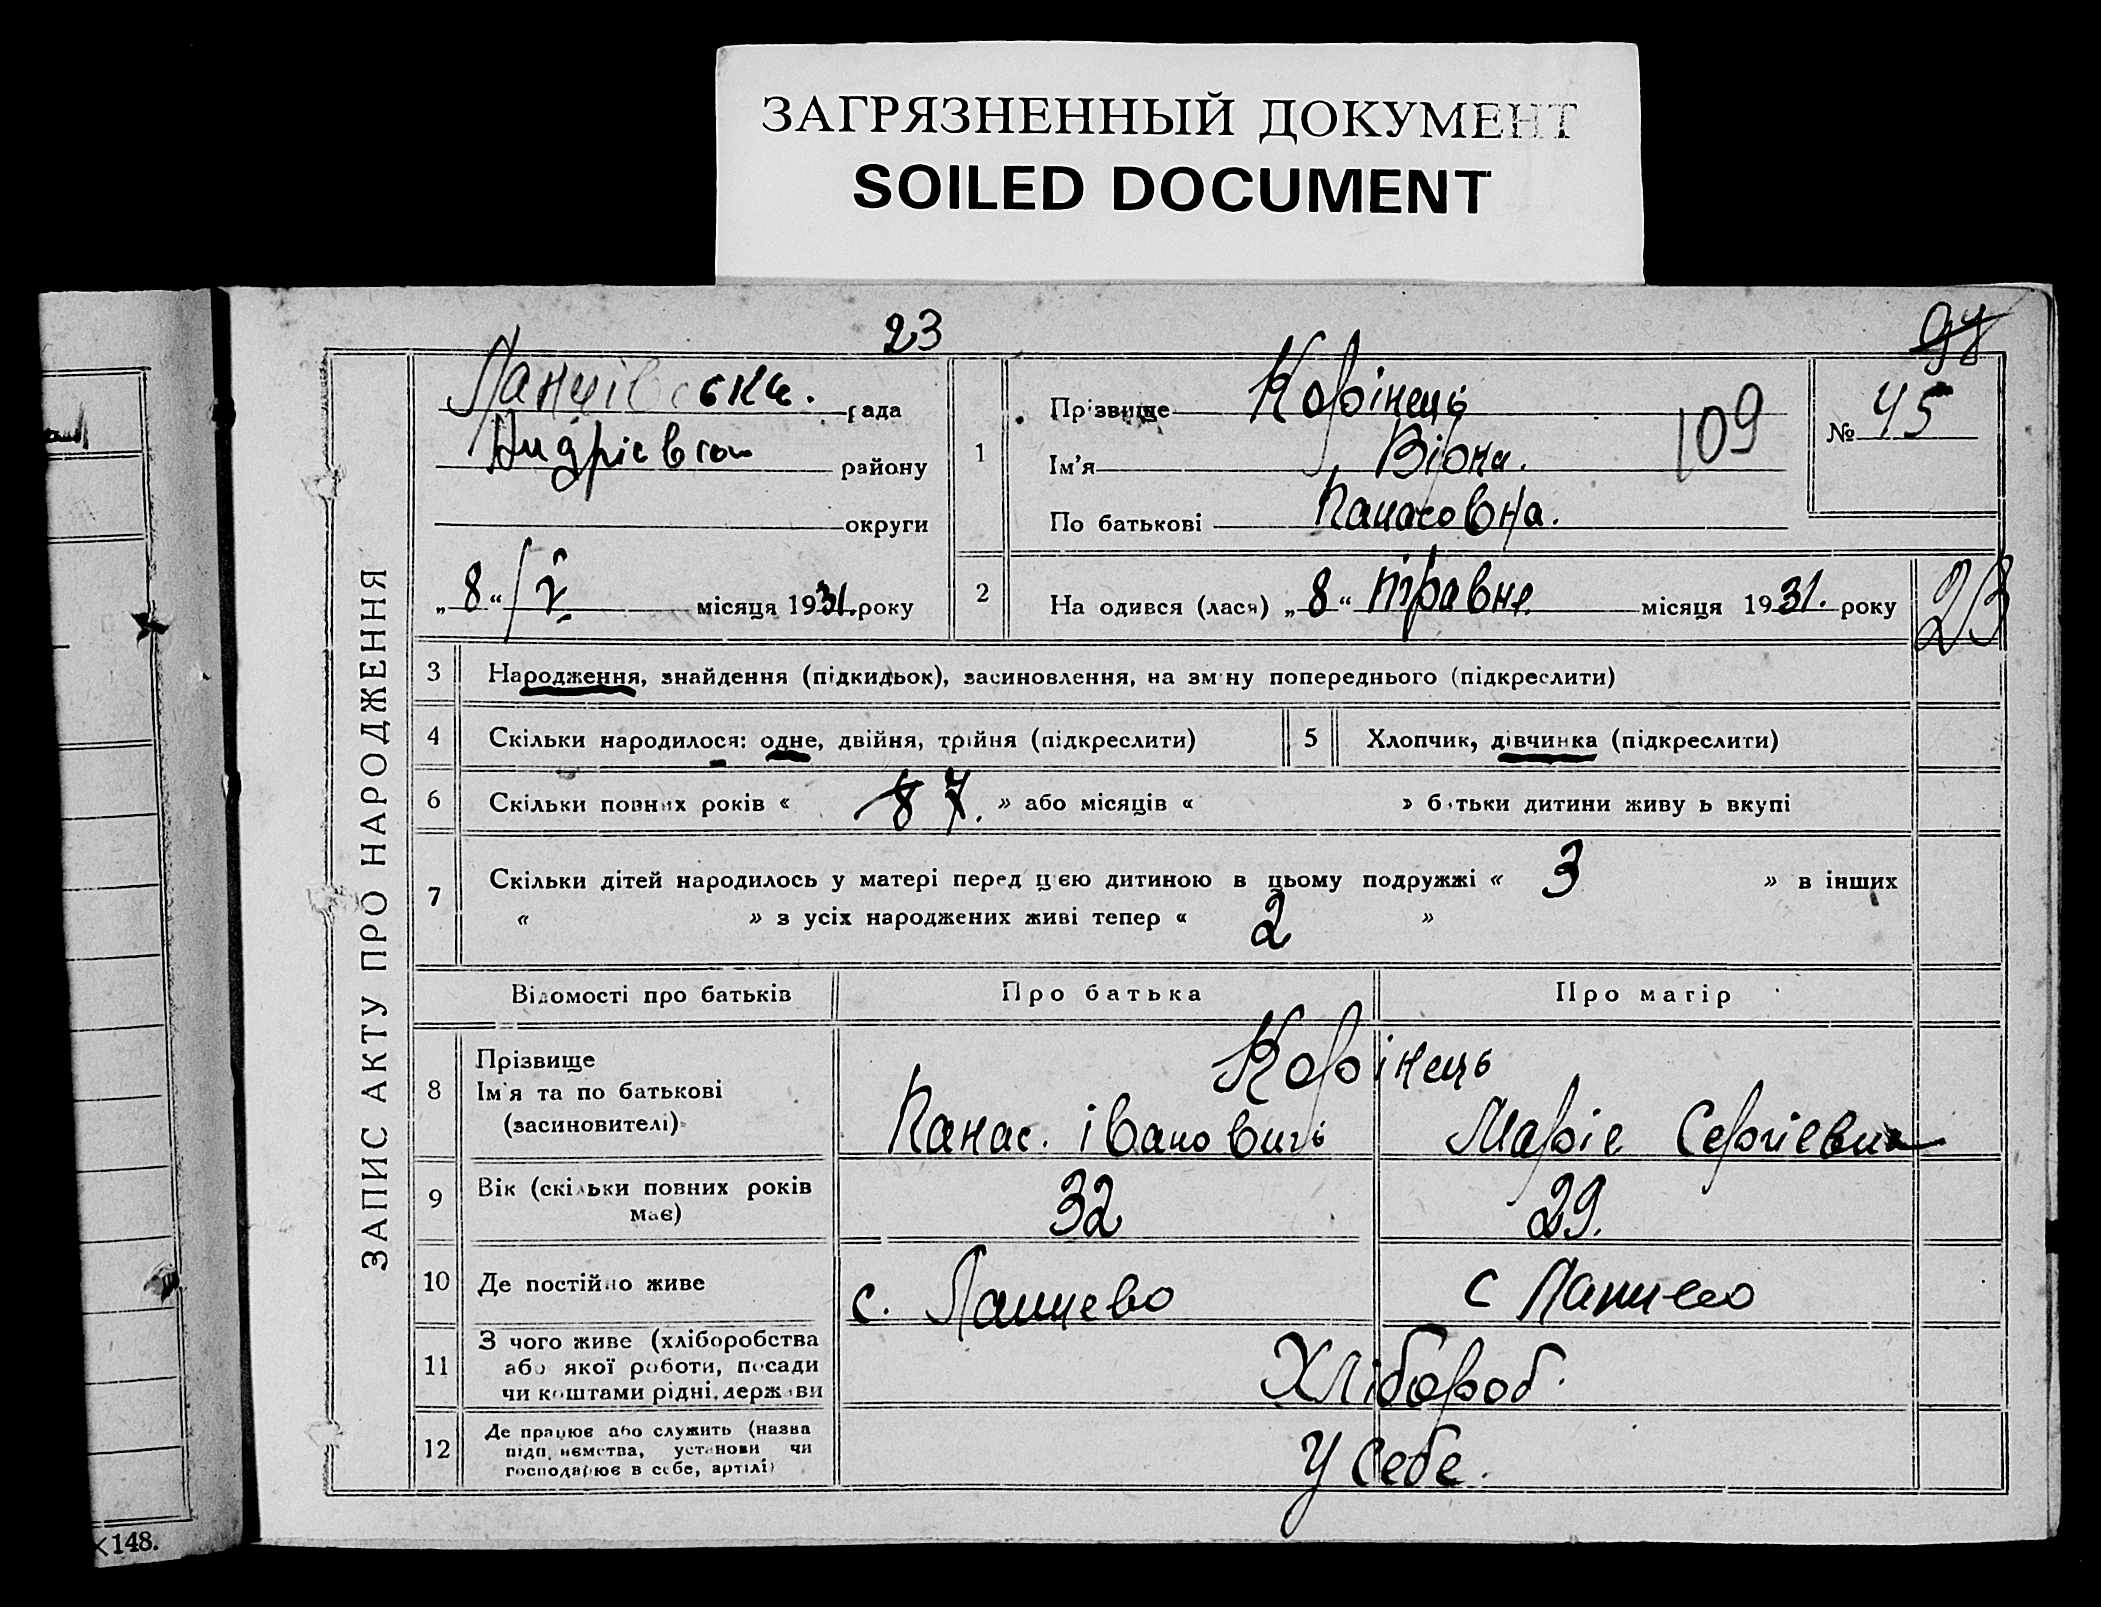 ЗАГРЯЗНЕННЫЙ ДОКУМЕНТ
SOILED DOCUMENT
23
98
ЗАПИС АКТУ ПРО НАРОДЖЕННЯ
рада
району
округи
„ 8 “ / V місяця 1931. року
1
Прізвище Корінець
Ім’я
По батькові Панасовна.
109
№ 45
2
На одився (лася) „ 8 “ травня місяця 1931. року
23
3 Народження, знайдення (підкидьок), засиновлення, на зміну попереднього (підкреслити)
4 Скільки народилося: одне, двійня, трійня (підкреслити)
5 Хлопчик, дівчинка (підкреслити)
6 Скільки повних років « 8 7. » або місяців « » батьки дитини живу ь вкупі
7 Скільки дітей народилось у матері перед цією дитиною в цьому подружжі « 3 » в інших
« » з усіх народжених живі тепер « 2 »
Відомості про батьків Про батька Про матір
8 Прізвище
Ім'я та по батькові
(засиновителі)
Корінець
Панас. івановичь Маріє Сергієвна
9 Вік (скільки повних років
має)
32 29.
10 Де постійно живе с. с
11 З чого живе (хліборобства
або якої роботи, посади
чи коштами рідні, держави
Хлібороб.
12 Де працює або служить (назва
підприємства, установи чи
господарює в себе, артілі)
У себе.
×148.